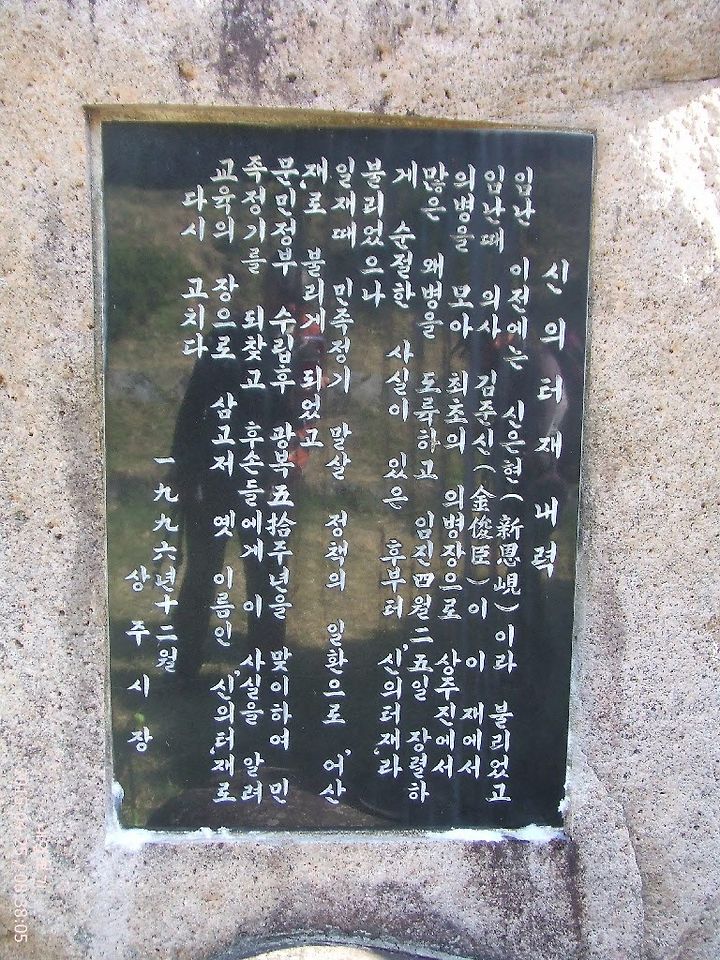 신의터재 내력
임난 이전에는 신은현(新恩峴)이라 불리었고
임난때 의사 김준신(金俊臣)이 이 재에서
의병을 모아 최초의 의병장으로 상주진에서
많은 왜병을 도륙하고 임진四월二五일 장렬하
게 순절한 사실이 있은 후부터 "신의터재"라
불리었으나
일재때 민족정기 말살 정책의 일환으로 "어산
재"로 불리게 되었고
문민정부 수립후 광복五拾주년을 맞이하여 민
족정기를 되찾고 후손들에게 이 사실을 알려
교육의 장으로 삼고저 옛 이름인 "신의터재"로
다시 고치다
一九九六년十二월
상주시장
08:38:05